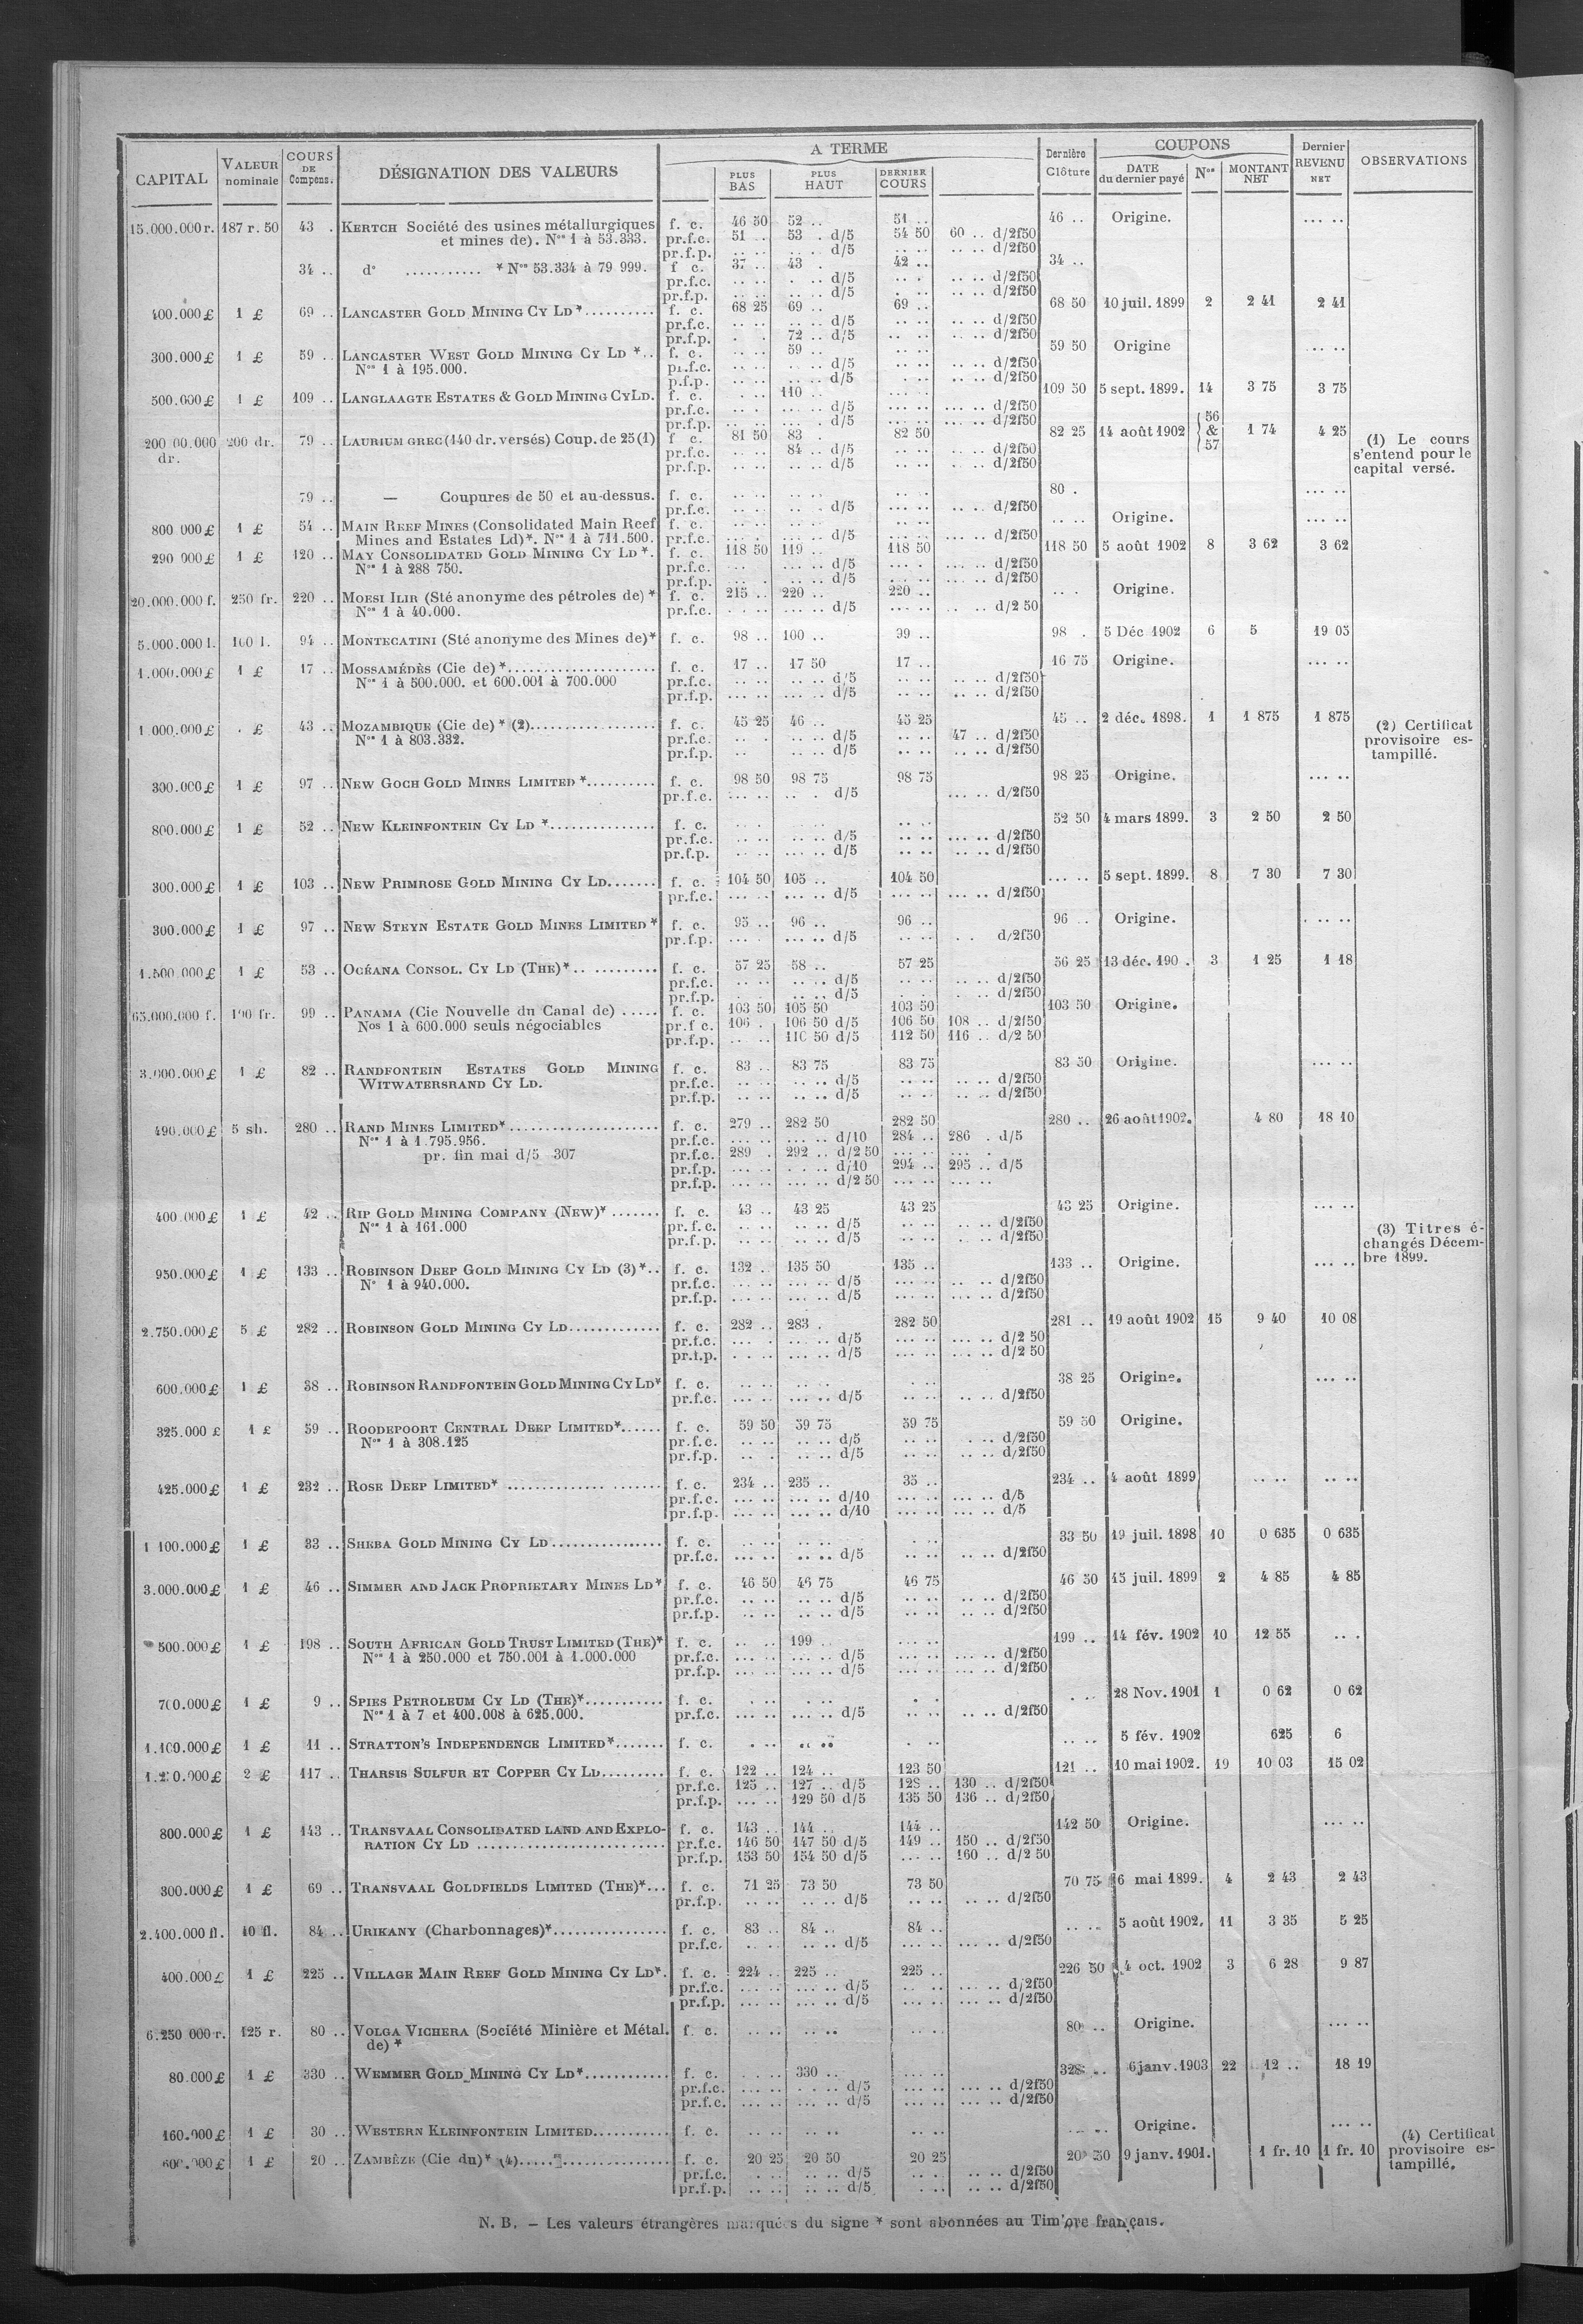 CAPITAL | VALEUR nominale | COURS DE Compens. | DÉSIGNATION DES VALEURS | A TERME | PLUS BAS | PLUS HAUT | DERNIER COURS | Dernière Clôture | COUPONS | DATE du dernier payé | Nos | MONTANT NET | Dernier REVENU NET | OBSERVATIONS
15.000.000 r. 187 r. 50 43 . KERTCH Société des usines métallurgiques f. c. 46 50 52 .. 51 .. 46 .. Origine. ... ..
et mines de). Nos 1 à 53.333. pr.f.c. 51 .. 53 . d/5 54 50 60 .. d/2f50
pr.f.p. .. .. .. .. d/5 .. .. .. .. d/2f50
34 .. do ........... * Nos 53.334 à 79 999. f c. 37 .. 43 . 42 .. 34 ..
pr.f.c. .. .. . .. d/5 .. . .. .. d/2f50
pr.f.p. .. .. .. .. d/5 . .. .. .. d/2f50
400.000 £ 1 £ 69 .. LANCASTER GOLD MINING CY LD *.......... f. c. 68 25 69 .. 69 .. 68 50 10 juil. 1899 2 2 41 2 41
pr.f.c. .. .. .. .. d/5 .. .. .. .. d/2f50
pr.f.p. . . 72 .. d/5 .. .. .. .. d/2f50
300.000 £ 1 £ 59 .. LANCASTER WEST GOLD MINING CY LD *.. f. c. .. .. 59 .. .. .. 59 50 Origine ... ..
Nos 1 à 195.000. pr.f.c. .. .. .. .. d/5 .. .. .. .. d/2f50
p.f.p. .. .. .. .. d/5 . .. .. .. d/2f50
500.000 £ 1 £ 109 .. LANGLAAGTE ESTATES & GOLD MINING CY LD. f. c. . .. 110 .. .. .. 109 50 5 sept. 1899. 14 3 75 3 75
pr.f.c. .. . ... .. d/5 ... .. ... .. d/2f50
pr.f.p. .. .. ... . d/5 .. .. .. .. d/2f50
200 00.000 dr. 200 dr. 79 .. LAURIUM GREC (140 dr. versés) Coup. de 25 (1) f c. 81 50 83 . 82 50 82 25 14 août 1902 56 & 57 1 74 4 25 (1) Le cours s'entend pour le capital versé.
pr.f.c. 84 .. d/5 .. .. .. .. d/2f50
pr.f.p. .. .. .. .. d/5 .. .. . .. d/2f50
79 .. — Coupures de 50 et au-dessus. f. c. .. .. .. .. .. .. 80 . ... ..
pr.f.c. .. .. .. .. d/5 .. .. .. .. d/2f50
800 000 £ 1 £ 54 .. MAIN REEF MINES (Consolidated Main Reef f. c. .. .. .. .. .. .. .. .. Origine. ... ..
Mines and Estates Ld)*. Nos 1 à 711.500. pr.f.c. ... .. ... .. d/5 ... .. ... .. d/2f50
290 000 £ 1 £ 120 .. MAY CONSOLIDATED GOLD MINING CY LD *. f. c. 118 50 119 .. 118 50 118 50 5 août 1902 8 3 62 3 62
Nos 1 à 288 750. pr.f.c. ... .. .. d/5 ... . ... .. d/2f50
pr.f.p. ... . .. .. d/5 ... .. ... .. d/2f50
20.000.000 f. 250 fr. 220 .. MOESI ILIR (Sté anonyme des pétroles de) * f. c. 215 .. 220 .. 220 .. .. . Origine.
Nos 1 à 40.000. pr.f.c. . .. .. ... .. d/5 ... .. .. .. d/2 50
5.000.000 l. 100 l. 94 .. MONTECATINI (Sté anonyme des Mines de)* f. c. 98 .. 100 .. 99 .. 98 . 5 Déc 1902 6 5 19 05
1.000.000 £ 1 £ 17 .. MOSSAMÉDÈS (Cie de) *..................... f. c. 17 .. 17 50 17 .. 16 75 Origine. ... ..
Nos 1 à 500.000. et 600.001 à 700.000 pr.f.c. .. .. .. .. d/5 .. .. .. .. d/2f50
pr.f.p. ... .. ... .. d/5 .. .. .. .. d/2f50
1 000.000 £ . £ 43 .. MOZAMBIQUE (Cie de) * (2)................. f. c. 45 25 46 .. 45 25 45 .. 2 déc. 1898. 1 1 875 1 875 (2) Certificat provisoire estampillé.
Nos 1 à 803.332. pr.f.c. .. .. .. d/5 .. .. 47 .. d/2f50
pr.f.p. .. .. .. d/5 .. .. .. .. d/2f50
300.000 £ 1 £ 97 .. NEW GOCH GOLD MINES LIMITED *.......... f. c. 98 50 98 75 98 75 98 25 Origine. ... ..
pr.f.c. ... .. .. . d/5 ... .. d/2f50
800.000 £ 1 £ 52 .. NEW KLEINFONTEIN CY LD *............... f. c. .. . .. .. 52 50 4 mars 1899. 3 2 50 2 50
pr.f.c. .. .. ... .. d/5 .. .. ... .. d/2f50
pr.f.p. .. .. ... .. d/5 .. .. .. .. d/2f50
300.000 £ 1 £ 103 .. NEW PRIMROSE GOLD MINING CY LD....... f. c. 104 50 105 .. 104 50 ... .. 5 sept. 1899. 8 7 30 7 30
pr.f.c. ... . ... .. d/5 ... .. ... .. d/2f50
300.000 £ 1 £ 97 .. NEW STEYN ESTATE GOLD MINES LIMITED * f. c. 95 .. 96 .. 96 .. 96 .. Origine. . .. ..
pr.f.p. ... . ... .. d/5 .. .. . . d/2f50
1.500.000 £ 1 £ 53 .. OCÉANA CONSOL. CY LD (THE)*.. .......... f. c. 57 25 58 .. 57 25 56 25 13 déc. 190 . 3 1 25 1 18
pr.f.c. .. .. .. .. d/5 .. .. .. .. d/2f50
pr.f.p. . . .. .. d/5 . . . .. d/2f50
65.000.000 f. 100 fr. 99 .. PANAMA (Cie Nouvelle du Canal de) ..... f. c. 103 50 105 50 103 50 103 50 Origine.
Nos 1 à 600.000 seuls négociables pr.f c. 106 . 106 50 d/5 106 50 108 .. d/2f50
pr.f.p. .. .. 110 50 d/5 112 50 116 .. d/2 50
3.000.000 £ 1 £ 82 .. RANDFONTEIN ESTATES GOLD MINING f. c. 83 .. 83 75 83 75 83 50 Origine. ... ..
WITWATERSRAND CY LD. pr.f.c. .. .. .. .. d/5 .. .. .. .. d/2f50
pr.f.p. .. .. .. .. d/5 .. .. .. .. d/2f50
490.000 £ 5 sh. 280 .. RAND MINES LIMITED*..................... f. c. 279 .. 282 50 282 50 280 .. 26 août 1902. 4 80 18 10
Nos 1 à 1.795.956. pr.f.c. ... .. ... .. d/10 284 .. 286 . d/5
pr. fin mai d/5 307 pr.f.c. 289 . 292 .. d/2 50 ... .. ... .
pr.f.p. ... .. . .. .. d/10 294 .. 295 .. d/5
pr.f.p. ... .. ... .. d/2 50 ... .. ... ..
400.000 £ 1 £ 42 .. RIP GOLD MINING COMPANY (NEW)* ....... f. c. 43 .. 43 25 43 25 43 25 Origine. ... ..
Nos 1 à 161.000 pr.f.c. .. .. .. .. d/5 .. .. .. .. d/2f50
pr.f.p. .. .. .. .. d/5 .. .. .. .. d/2f50
(3) Titres échangés Décembre 1899.
950.000 £ 1 £ 133 .. ROBINSON DEEP GOLD MINING CY LD (3)*.. f. c. 132 .. 135 50 135 .. 133 .. Origine. ... ..
No 1 à 940.000. pr.f.c. ... .. ... .. d/5 ... .. .. .. d/2f50
pr.f.p. ... .. ... .. d/5 ... .. ... .. d/2f50
2.750.000 £ 5 £ 282 .. ROBINSON GOLD MINING CY LD............. f. c. 282 .. 283 . 282 50 281 .. 19 août 1902 15 9 40 10 08
pr.f.c. ... . ... .. d/5 ... .. ... .. d/2 50
pr.f.p. . . .. ... .. d/5 ... .. ... .. d/2 50
600.000 £ 1 £ 38 .. ROBINSON RANDFONTEIN GOLD MINING CY LD* f. c. .. .. .. .. . .. 38 25 Origine. ... ..
pr.f.c. ... .. ... .. d/5 .. .. .. .. d/2f50
325.000 £ 1 £ 59 .. ROODEPOORT CENTRAL DEEP LIMITED*...... f. c. 59 50 59 75 59 75 59 50 Origine.
Nos 1 à 308.125 pr.f.c. .. .. .. .. d/5 .. .. . .. d/2f50
pr.f.p. .. . .. .. d/5 .. .. .. .. d/2f50
425.000 £ 1 £ 232 .. ROSE DEEP LIMITED* ..................... f. c. 234 .. 235 .. 35 .. 234 .. 4 août 1899 .. .. .. ..
pr.f.c. ... .. ... .. d/10 ... .. ... .. d/5
pr.f.p. ... .. ... .. d/10 ... .. ... .. d/5
1 100.000 £ 1 £ 33 .. SHEBA GOLD MINING CY LD................ f. c. .. .. .. .. . .. 33 50 19 juil. 1898 10 0 635 0 635
pr.f.c. ... .. .. .. d/5 .. .. .. .. d/2f50
3.000.000 £ 1 £ 46 .. SIMMER AND JACK PROPRIETARY MINES LD* f. c. 46 50 46 75 46 75 46 50 15 juil. 1899 2 4 85 4 85
pr.f.c. .. .. .. .. d/5 .. .. .. .. d/2f50
pr.f.p. .. .. .. .. d/5 .. .. .. .. d/2f50
500.000 £ 1 £ 198 .. SOUTH AFRICAN GOLD TRUST LIMITED (THE)* f. c. .. .. 199 .. ... .. 199 .. 14 fév. 1902 10 12 55 .. .
Nos 1 à 250.000 et 750.001 à 1.000.000 pr.f.c. ... .. ... .. d/5 ... .. ... .. d/2f50
pr.f.p. ... .. ... .. d/5 ... .. ... .. d/2f50
700.000 £ 1 £ 9 .. SPIES PETROLEUM CY LD (THE)*........... f. c. . .. . .. . . . .. 28 Nov. 1901 1 0 62 0 62
Nos 1 à 7 et 400.008 à 625.000. pr.f.c. ... .. ... .. d/5 .. .. .. .. d/2f50
1.100.000 £ 1 £ 11 .. STRATTON'S INDEPENDENCE LIMITED*....... f. c. . .. .. .. . .. .. .. 5 fév. 1902 625 6
2 £ 117 .. THARSIS SULFUR ET COPPER CY LD......... f. c. 122 .. 124 .. 123 50 121 .. 10 mai 1902. 19 10 03 15 02
pr.f.c. 125 .. 127 .. d/5 128 .. 130 .. d/2f50
pr.f.p. ... .. 129 50 d/5 135 50 136 .. d/2f50
800.000 £ 1 £ 143 .. TRANSVAAL CONSOLIDATED LAND AND EXPLO- f. c. 143 .. 144 .. 144 .. 142 50 Origine. ... ..
RATION CY LD ........................... pr.f.c. 146 50 147 50 d/5 149 .. 150 .. d/2f50
pr.f.p. 153 50 154 50 d/5 ... .. 160 .. d/2 50
300.000 £ 1 £ 69 .. TRANSVAAL GOLDFIELDS LIMITED (THE)*... f. c. 71 25 73 50 73 50 70 75 6 mai 1899. 4 2 43 2 43
pr.f.p. .. .. .. .. d/5 .. .. .. .. d/2f50
2.400.000 fl. 10 fl. 84 .. URIKANY (Charbonnages)*................ f. c. 83 .. 84 .. 84 .. .. .. 5 août 1902. 11 3 35 5 25
pr.f.c. .. .. .. .. d/5 ... .. ... .. d/2f50
400.000 £ 1 £ 225 .. VILLAGE MAIN REEF GOLD MINING CY LD*. f. c. 224 .. 225 .. 225 .. 226 50 4 oct. 1902 3 6 28 9 87
pr.f.c. ... .. ... .. d/5 ... .. ... .. d/2f50
pr.f.p. ... .. ... .. d/5 ... .. ... .. d/2f50
6.250 000 r. 125 r. 80 .. VOLGA VICHERA (Société Minière et Métal. f. c. .. .. .. .. .. .. 80 .. Origine. ... ..
de) *
80.000 £ 1 £ 330 .. WEMMER GOLD MINING CY LD*............ f. c. . .. 330 .. ... .. 328 .. 6 janv. 1903 22 12 .. 18 19
pr.f.c. ... .. . .. .. d/5 ... .. ... .. d/2f50
pr.f.c. ... .. ... .. d/5 ... .. ... .. d/2f50
160.000 £ 1 £ 30 .. WESTERN KLEINFONTEIN LIMITED........... f. c. .. .. .. .. .. .. .. .. Origine. ... ..
600.000 £ 1 £ 20 .. ZAMBÈZE (Cie du)* (4)..................... f. c. 20 25 20 50 20 25 20 50 9 janv. 1901. 1 fr. 10 1 fr. 10 (4) Certificat provisoire estampillé.
pr.f.c. . .. .. .. d/5 . .. .. .. d/2f50
pr.f.p. .. .. .. .. d/5 . .. .. .. d/2f50
N. B. – Les valeurs étrangères marquées du signe * sont abonnées au Timbre français.